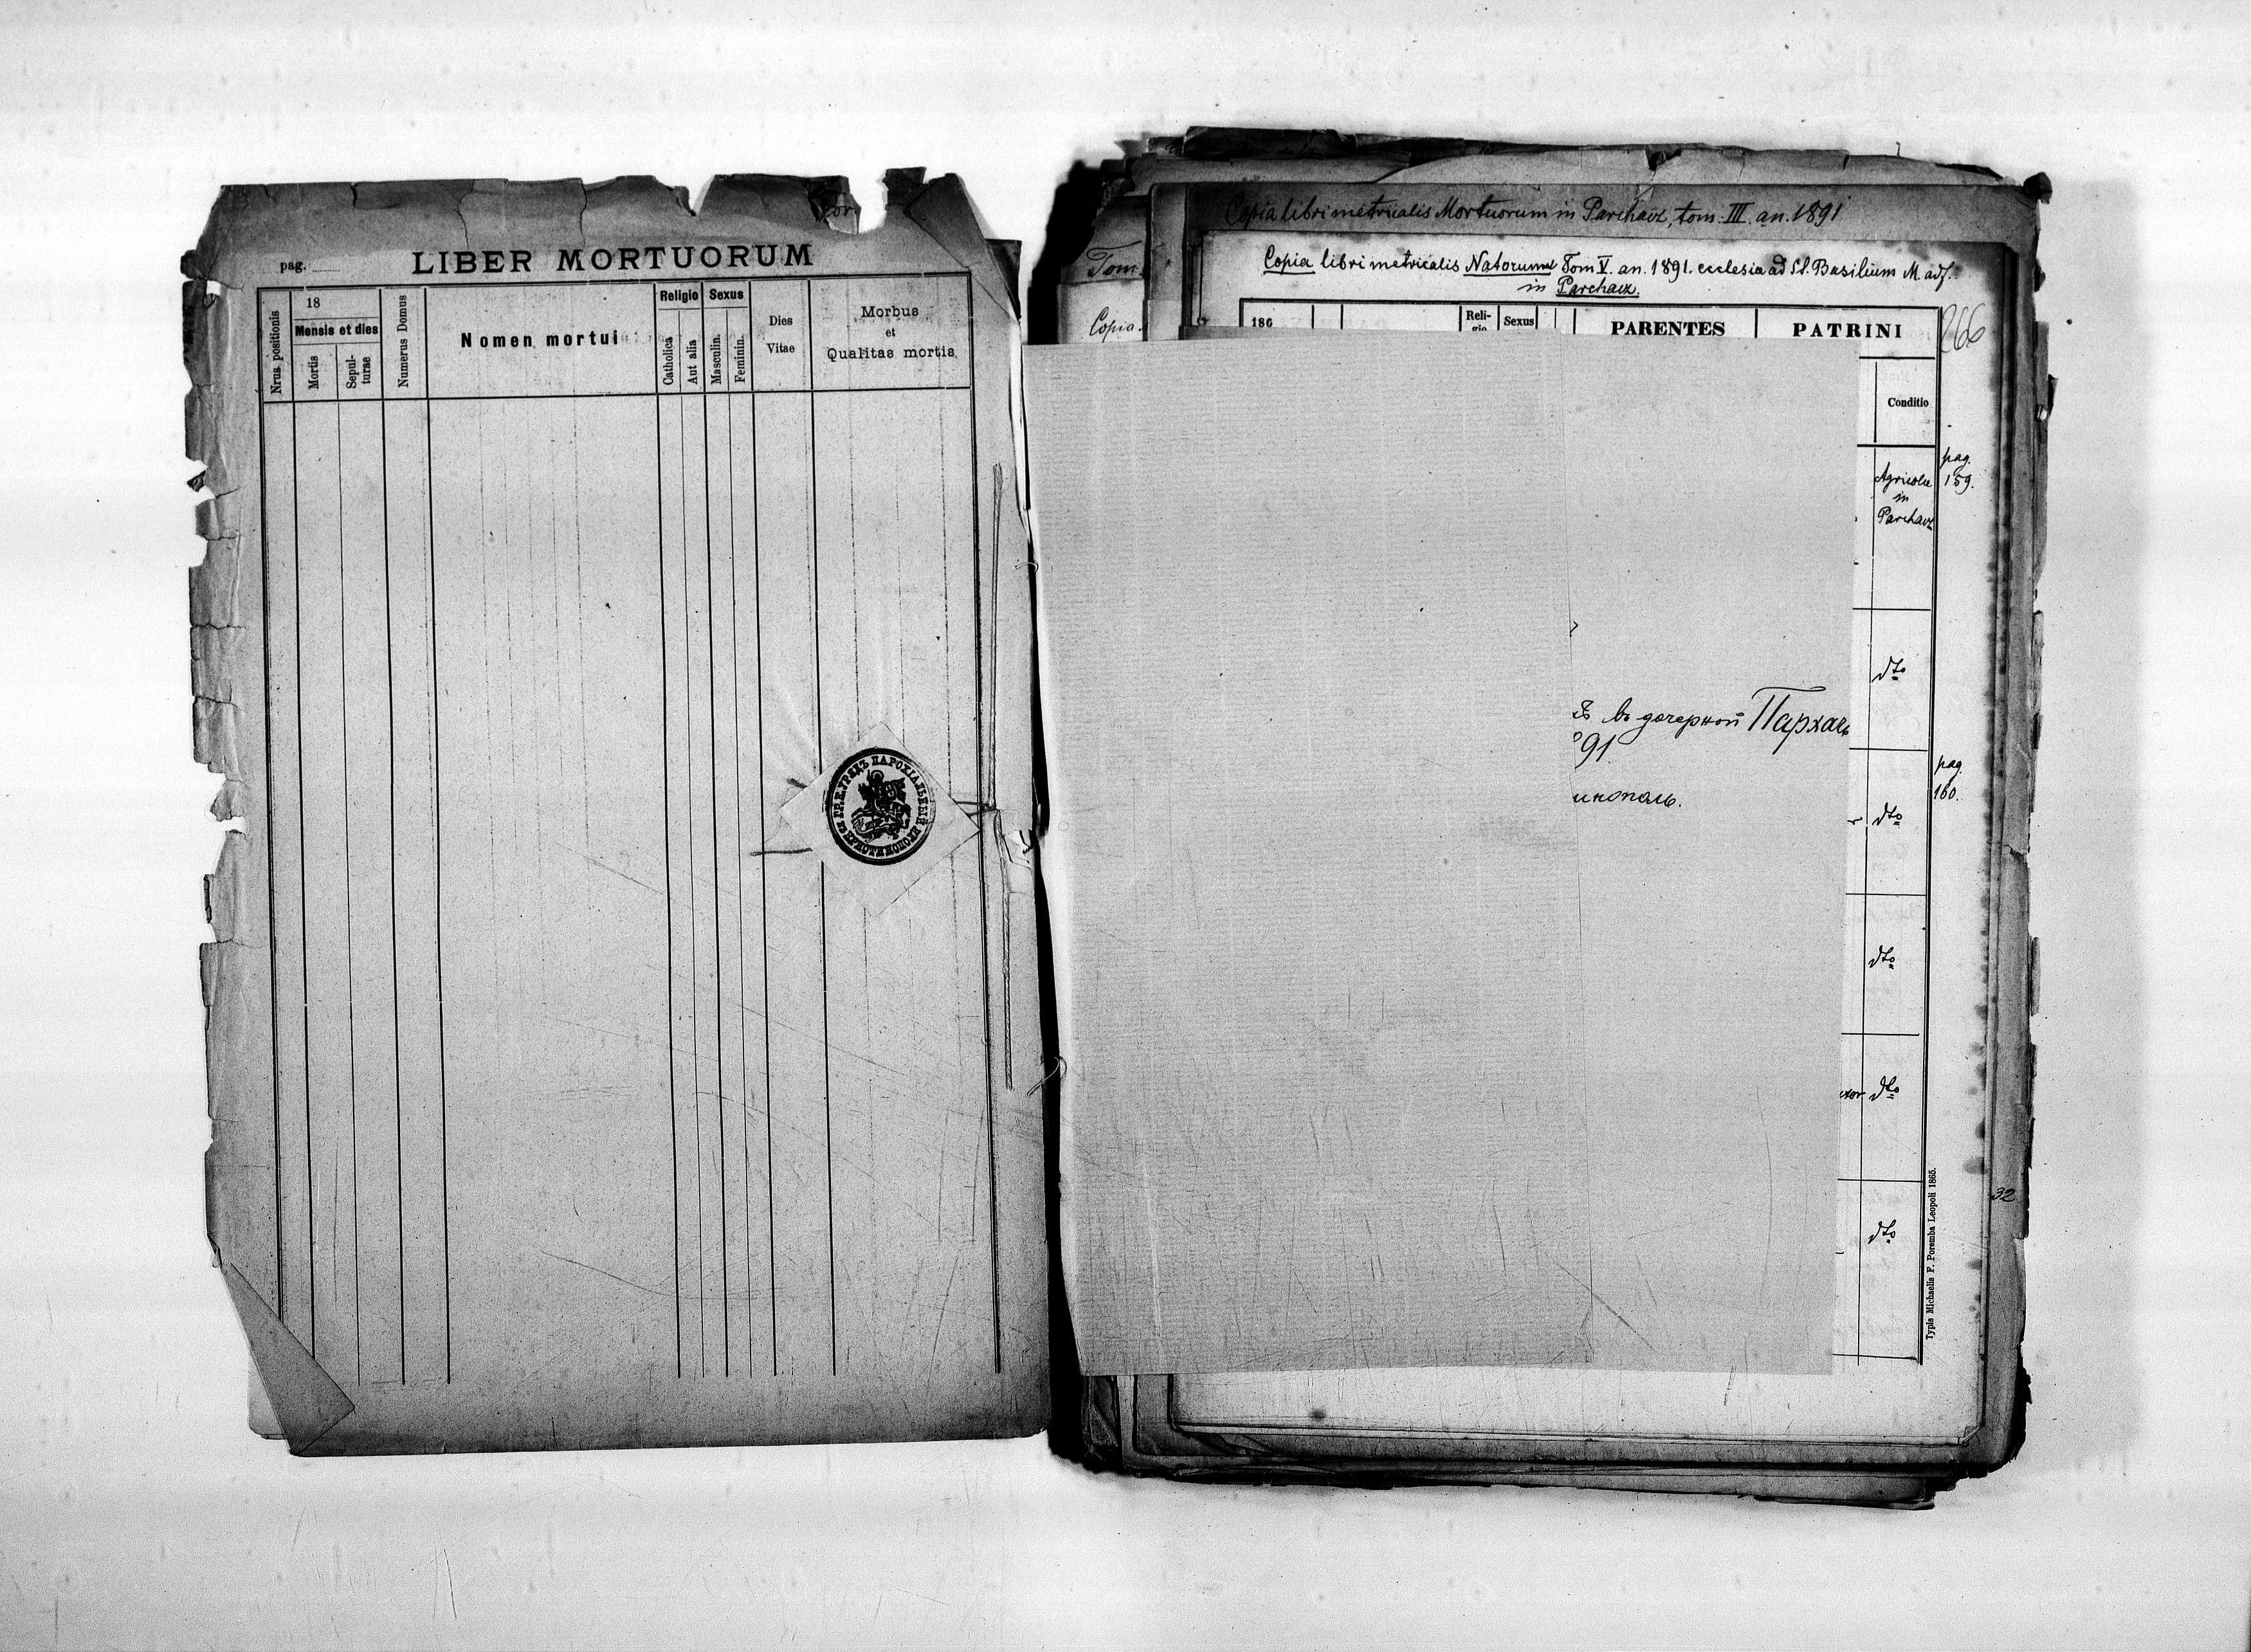 pag.
LIBER MORTUORUM
Nrus positionis
18
Mensis et dies
Mortis
Sepul-
turae
Numerus Domus
Nomen mortui
Religio
Catholica
Aut alia
Sexus
Masculin.
Feminin.
Dies
Vitae
Morbus
et
Qualitas mortis
Tom.
Copia
Copia libri metricalis Mortuorum in Parchacz, tom: III. an. 1891
Copia libri metricalis Natorum Tom V. an. 1891. ecclesia ad St. Basilium M. adf.
in Parchacz.
266
186
Reli-
gio
Sexus
PARENTES
PATRINI
Conditio
pag.
159.
Agricolae
in
Parchacz
dto
въ дочерной Пархачь
91
инополь.
pag.
160.
dto
dto
dto
dto
32
Typis Michaelis F. Poremba Leopoli 1865.